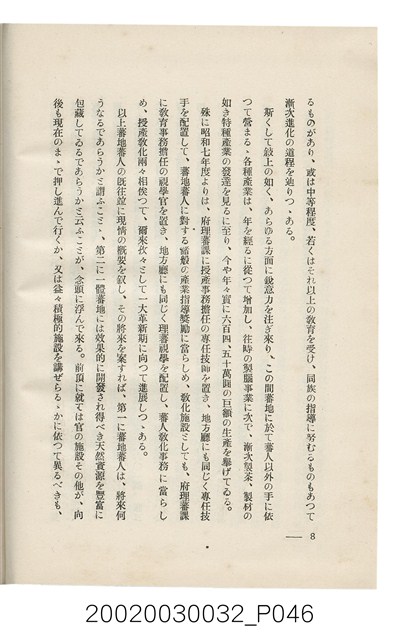 るものがあり、或は中等程度、若くはそれ以上の教育を受け、同族の指導に努むるものもあつて
漸次進化の道程を辿りつゝある。
斯くして敍上の如く、あらゆる方面に鋭意力を注ぎ來り、この間蕃地に於て蕃人以外の手に依
つて營まる、各種產業は、年を經るに從つて增加し、往時の製腦事業に次で、漸次製茶、製材の
如き特種產業の發達を見るに至り、今や年々實に六百四、五十萬圓の巨額の生產を擧げてゐる。
殊に昭和七年度よりは、府理蕃課に授產事務擔任の專任技師を置き、地方廳にも同じく專任技
手を配置して、蕃地蕃人に對する諸般の產業指導獎勵に當らしめ、敎化施設としても、府理蕃課
に敎育事務擔任の視學官を置き、地方廳にも同じく理蕃視學を配置し、蕃人敎化事務に當らし
め、授產敎化兩々相俟つて、爾來孜々として一大革新期に向つて進展しつゝある。
以上蕃地蕃人の既往竝に現情の概要を叙し、その將來を案ずれば、第一に蕃地蕃人は、將來何
うなるであらうかと謂ふこと、、第二に一體蕃地には效果的に開發され得べき天然資源を豐富に
包藏してゐるであらうかと云ふことが、念頭に浮んで來る。前項に就ては官の施設その他が、向
後も現在のまゝで押し進んで行くか、又は益々積極的施設を講ぜらるゝかに依つて異るべきも、
8
20020030032_P046